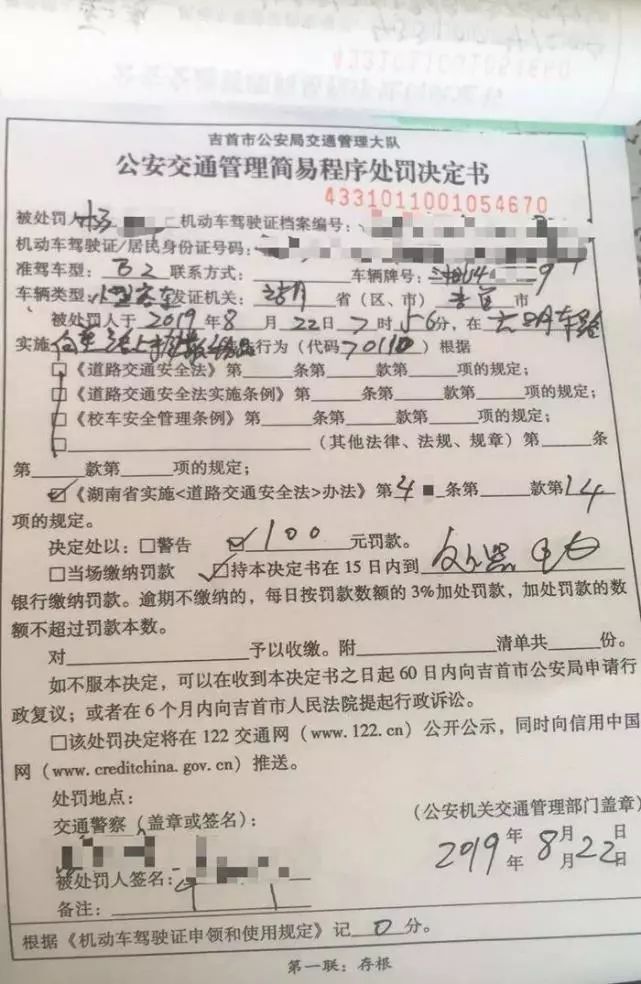 吉首市公安局交通管理大队
公安交通管理简易程序处罚决定书
4331011001054670
被处罚人杨 机动车驾驶证档案编号:
机动车驾驶证/居民身份证号码:
准驾车型: B2 联系方式: 车辆牌号: 9
车辆类型: 小型客车 发证机关: 湖南 省(区、市) 吉首 市
被处罚人于 2019 年 8 月 22 日 7 时 56分,在
实施 行为(代码 70110 )根据
□《道路交通安全法》第 条第 款第 项的规定;
□《道路交通安全法实施条例》第 条第 款第 项的规定;
□《校车安全管理条例》第 条第 款第 项的规定;
□ (其他法律、法规、规章)第 条
第 款第 项的规定;
☑《湖南省实施<道路交通安全法>办法》第4 条第 款第14
项的规定。
决定处以:□警告 ☑ 100 元罚款。
□当场缴纳罚款 ☑持本决定书在 15 日内到
银行缴纳罚款。逾期不缴纳的,每日按罚款数额的 3%加处罚款,加处罚款的数
额不超过罚款本数。
对 予以收缴。附 清单共 份。
如不服本决定,可以在收到本决定书之日起 60 日内向吉首市公安局申请行
政复议;或者在 6 个月内向吉首市人民法院提起行政诉讼。
□该处罚决定将在 122 交通网(www.122.cn)公开公示,同时向信用中国
网(www.creditchina.gov.cn)推送。
处罚地点:
交通警察(盖章或签名):
(公安机关交通管理部门盖章)
2019 年 8 月 22 日
年 月 日
被处罚人签名:
备注:
根据《机动车驾驶证申领和使用规定》记 0 分。
第一联:存根